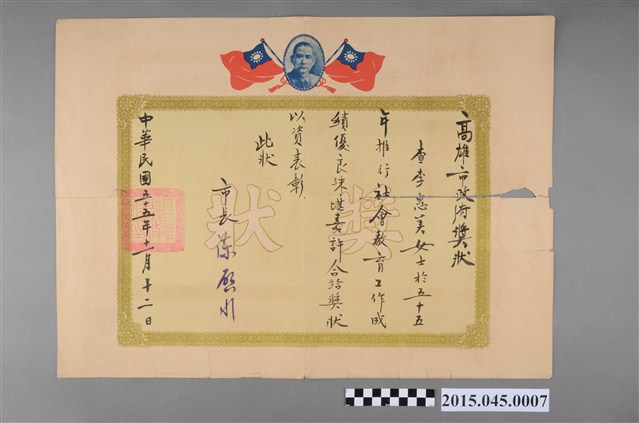 高雄市政府獎狀
查李惠美女士於五十五
年推行社會教育工作成
績優良殊堪嘉許合給獎狀
以資表彰
此狀
市長 陳啟川
中華民國五十五年十二月十二日
獎狀
2015.045.0007